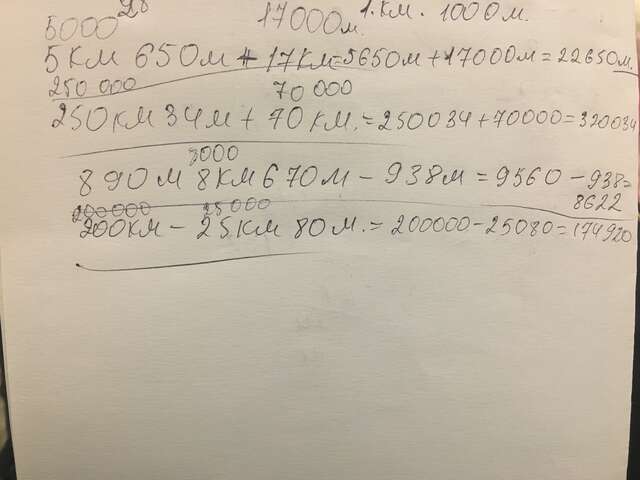 дз 1 км. 1000 м.
5000 17000 м.
5 км 650 м + 17 км = 5650 м + 17000 м = 22650 м.
250 000 70 000
250 км 34 м + 70 км. = 250034 + 70000 = 320034
8000
890 м 8 км 670 м - 938 м = 9560 - 938 =
8622
200000 25000
200 км - 25 км 80 м. = 200000 - 25080 = 174920